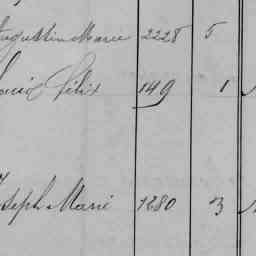 Augustin Marie 2228 5
Louis Félix 149 1
Joseph Marie 1280 3